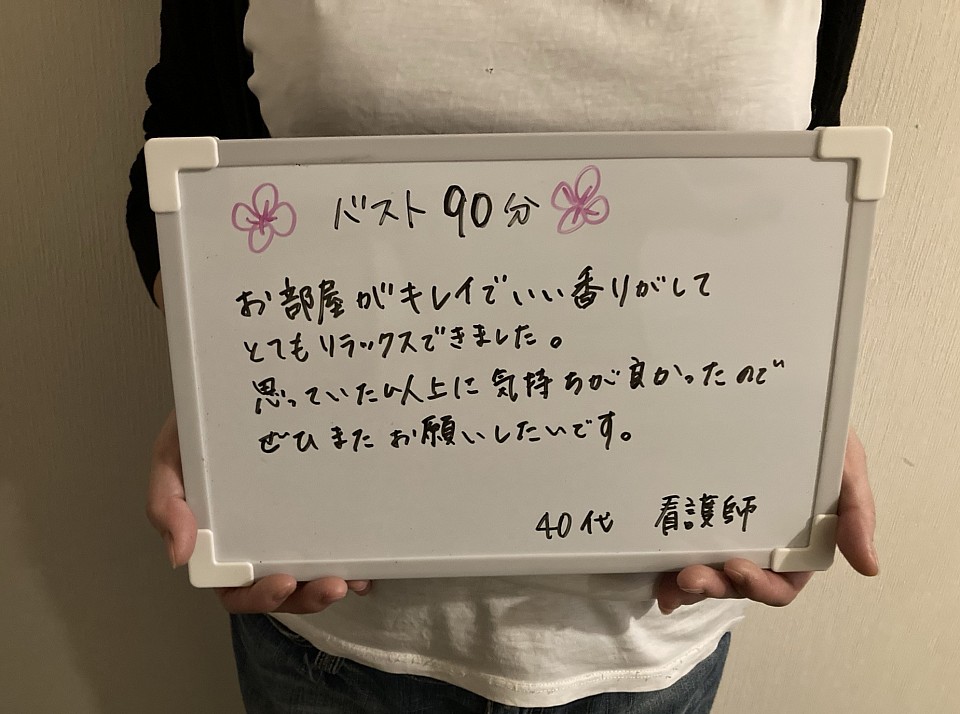 バスト 90分
お部屋がキレイでいい香りがして
とてもリラックスできました。
思っていた以上に気持ちが良かったので
ぜひまたお願いしたいです。
40代 看護師